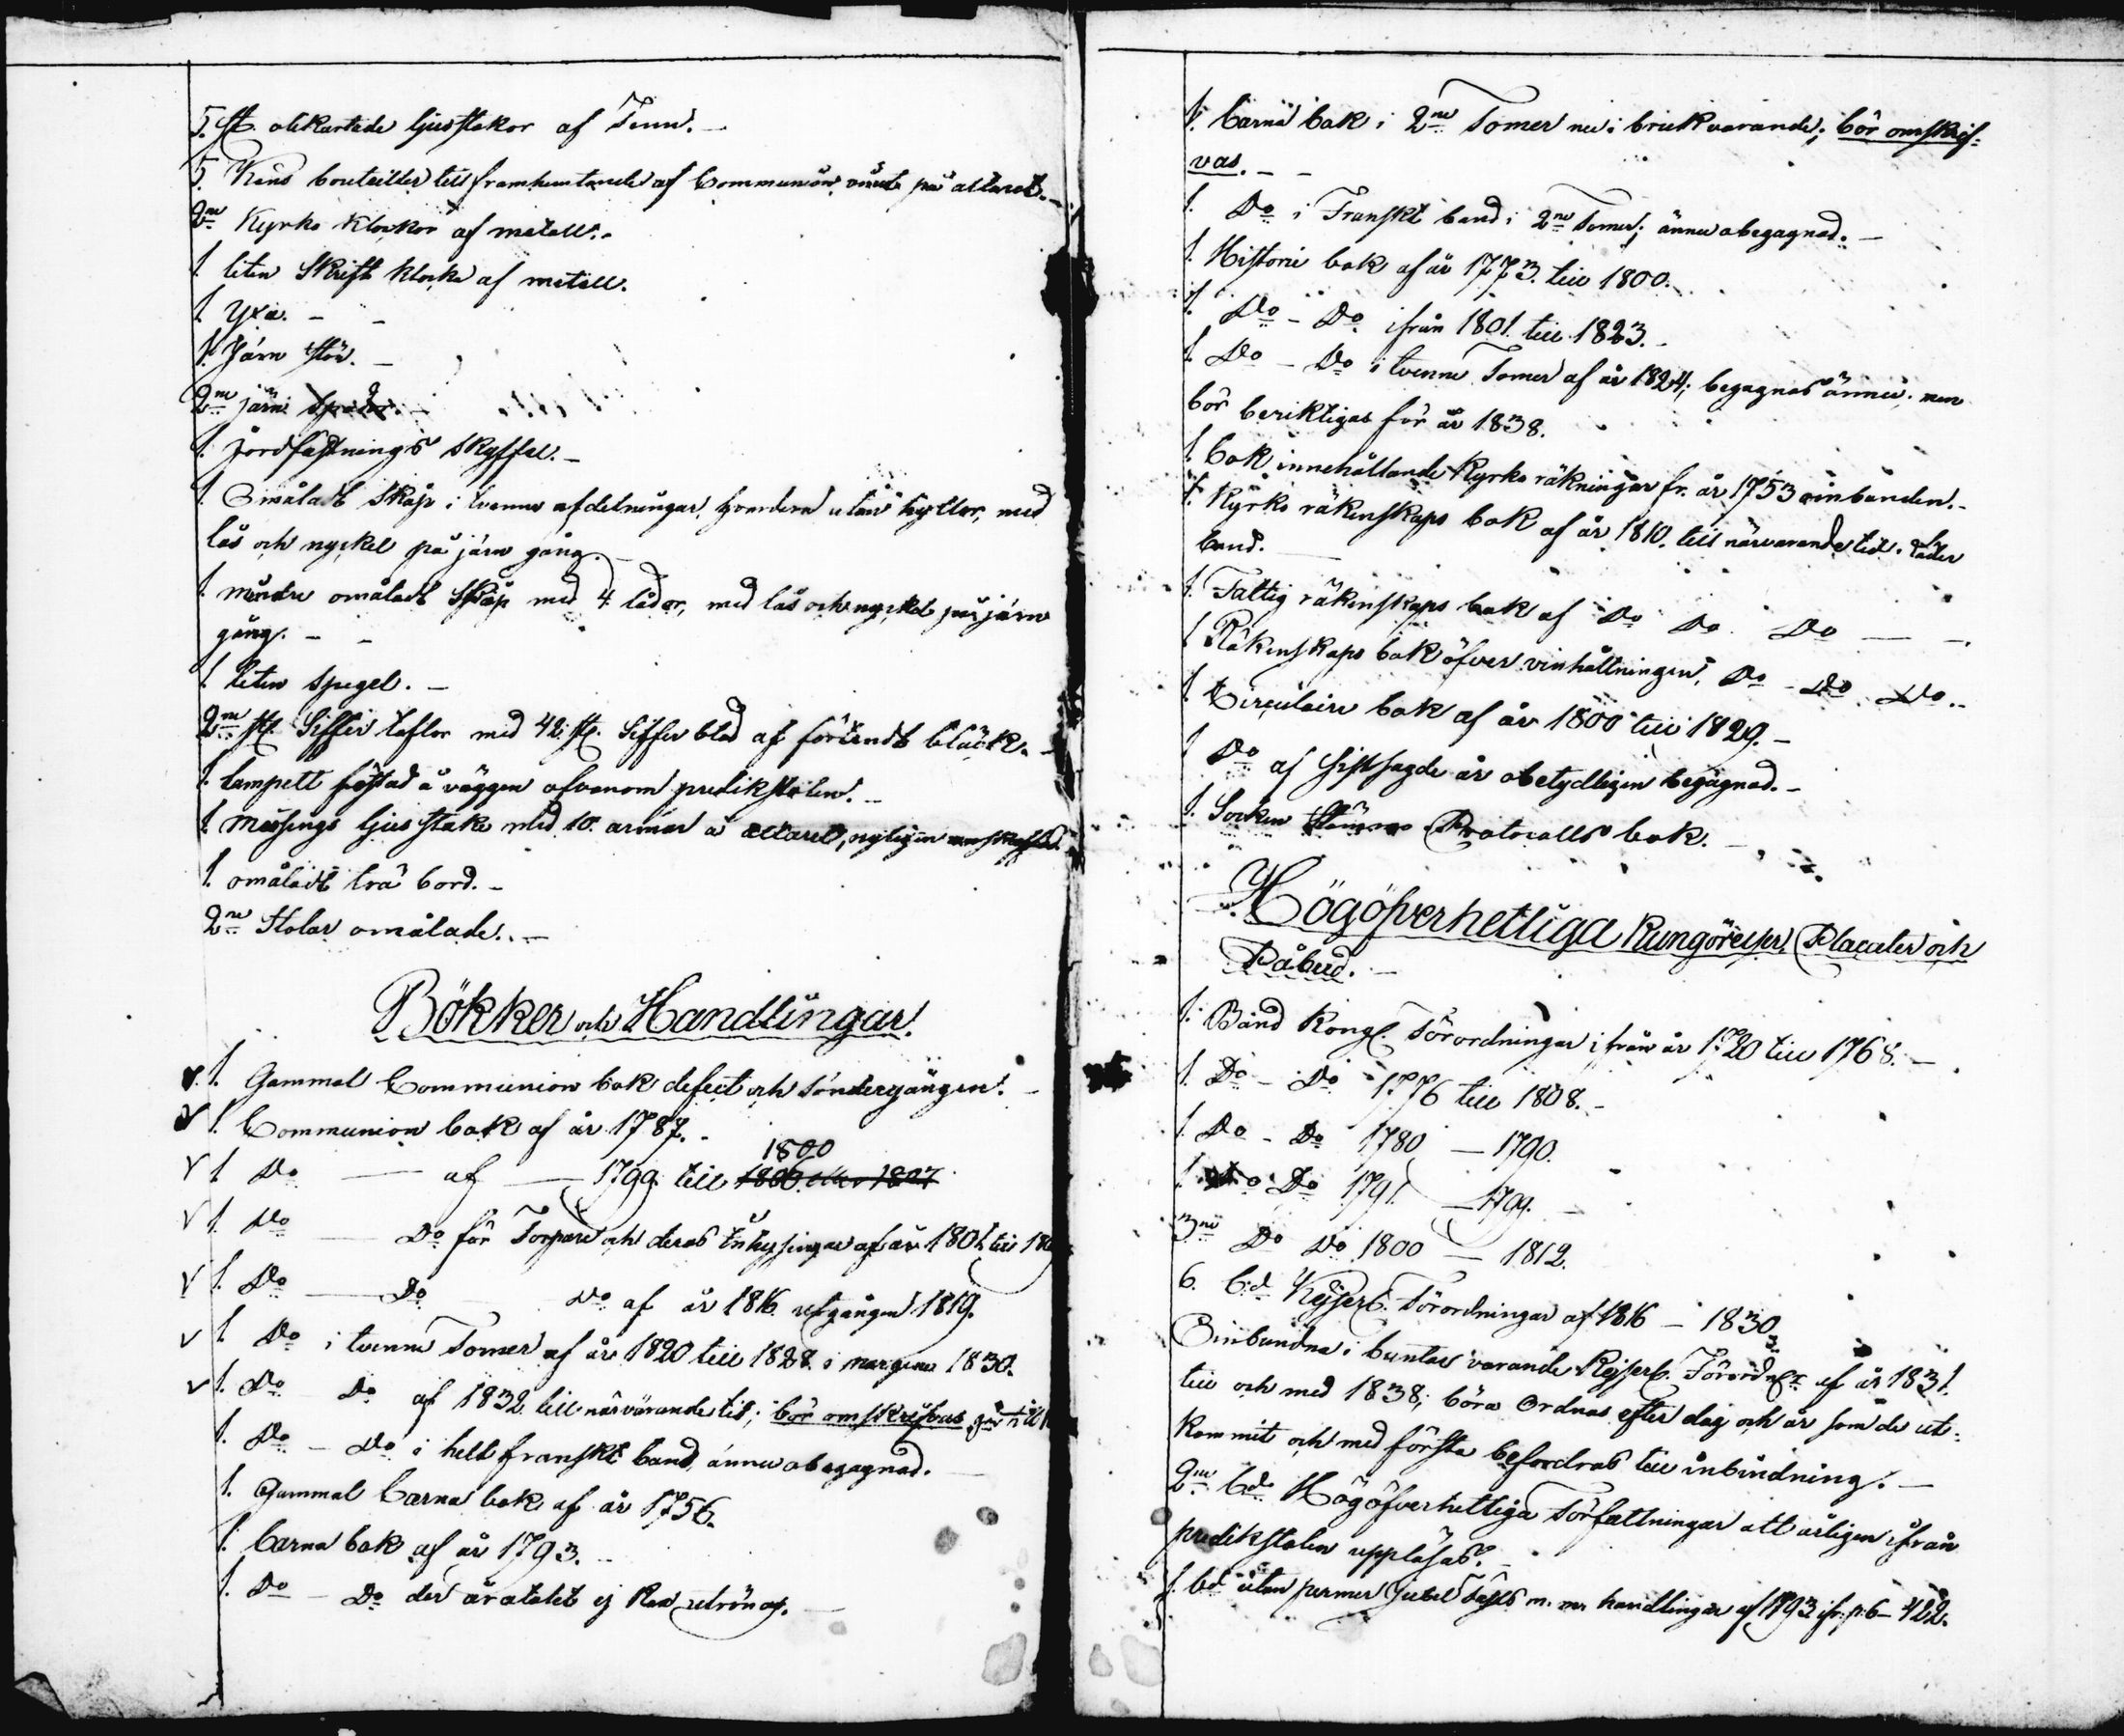 5. st. olikartade ljusstakar af Tenn. –
5. Kins bouteiller till framhemtande af Communion på altaret. –
2ne Kyrko klockor af metall. –
1. liten Skrift klocka af metall.
1. Yxa. – –
1. Järn stör. –
2ne järn Spadar. –
1. Jordfästnings skyffel. –
1. Omåladt Skåp i tvenne afdelningar, hvardera utan hyllor, med
lås och nyckel på järn gång. –
1. mindre omåladt Skåp med 4 lådor, med lås och nyckel på järn
gång. – –
1. liten Spegel. –
2ne st. Siffer taflor med 42 st. Siffer blad af förtendt bläck. –
1. lampett fästad å väggen ofvanom predikstolen. –
1. Messings ljus stake med 10. armar å altaret, nyligen anskaffad.
1. omåladt trä bord. –
2ne Stolar omålade. –
Bökker och Handlingar.
V. 1. Gammal Communion bok defect och söndergången. –
V 1. Communion bok af år 1787. –
1800
V 1. Do — af — 1799 till 1806 eller 1807
V 1. Do — Do för Torpare och deras Inhysingar af år 1801 till
V 1. Do — Do Do af år 1816 utgången 1819.
V 1. Do i tvenne Tomer af år 1820 till 1828. i margine 1830.
V 1. Do Do af 1832 till närvarande tid; bör omskrifvas
1. Do – Do i helt franskt band, ännu obegagnad. —
1. Gammal Barna bok af år 1756.
1. Barna bok af år 1793. –
1. Do – Do der åratalet ej kan utrönas. —
1. Barna bok i 2ne Tomer nu i bruk varande; bör omskrif-
vas. – –
1. Do i Franskt band i 2ne Tomer; ännu obegagnad. –
1. Historie bok af år 1773. till 1800.
1. Do – Do ifrån 1801. till 1823. –
1. Do – Do i tvenne Tomer af år 1824; begagnas ännu, men
bör beriktigas för år 1838.
1. Bok innehållande Kyrko räkningar fr. år 1753 oinbunden. –
1. Kyrko räkenskaps bok af år 1810. till närvarande tid. läder
band. —
1. Fattig räkenskaps bok af Do Do Do — –
1. Räkenskaps bok öfver vinhållningen, Do – Do Do –
1. Circulaire bok af år 1800 till 1829. –
1. Do af sistsagde år obetydligen begagnad. –
1. Socken Stämmo Protocolls bok. –
Högöfverhetliga Kungörelser, Placater och
Påbud. –
1. Band Kongl. Förordningar ifrån år 1720 till 1768. –
1. Do – Do 1776 till 1808. –
1. Do – Do 1780 — 1790.
1. Do Do 1791. — 1799.
3ne Do Do 1800 — 1812.
6. b:d Kejserl. Förordningar af 1816 – 1830
Oinbundna i buntar varande Kejserl. Förordngr af år 1831.
till och med 1838; böra Ordnas efter dag och år som de ut-
kommit och med första befordras till inbindning. –
2ne b:d Högöfverhetliga Författningar att årligen ifrån
predikstolen uppläsas. –
1. bd utan permar Jubel Fests m. m. handlingar af 1793 ifr. p: 6 – 422.